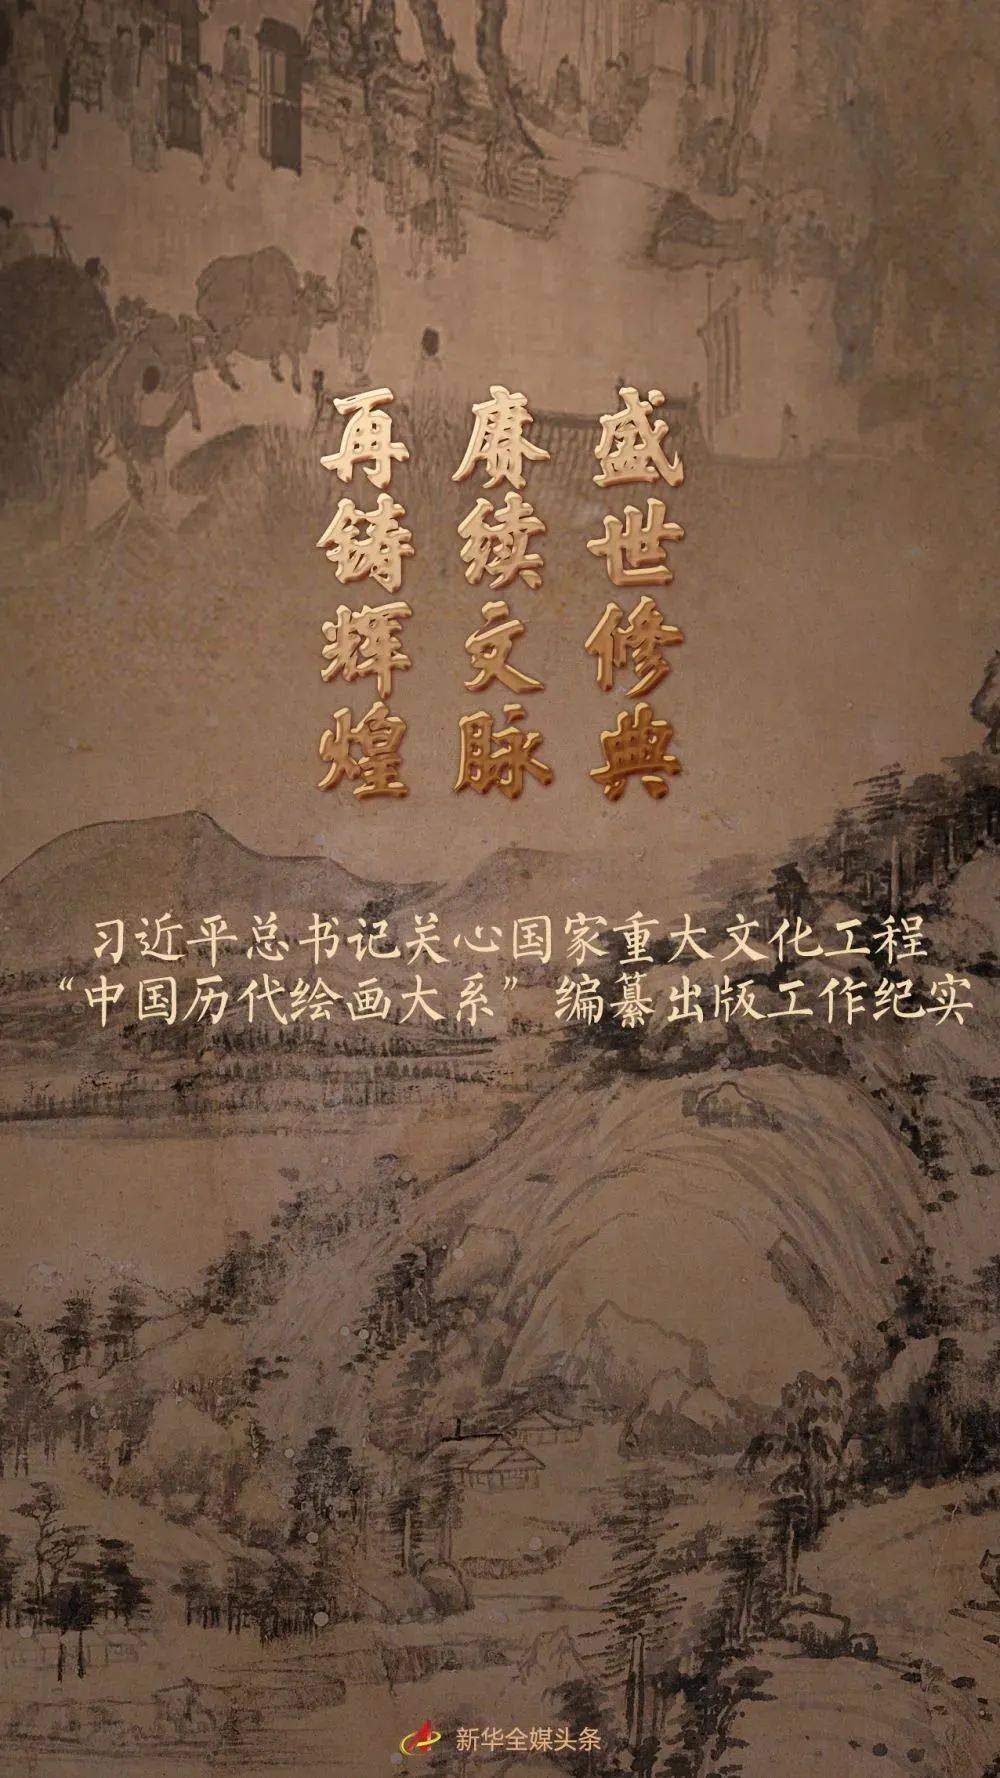 盛世修典
赓续文脉
再铸辉煌
习近平总书记关心国家重大文化工程
“中国历代绘画大系”编纂出版工作纪实
新华全媒头条